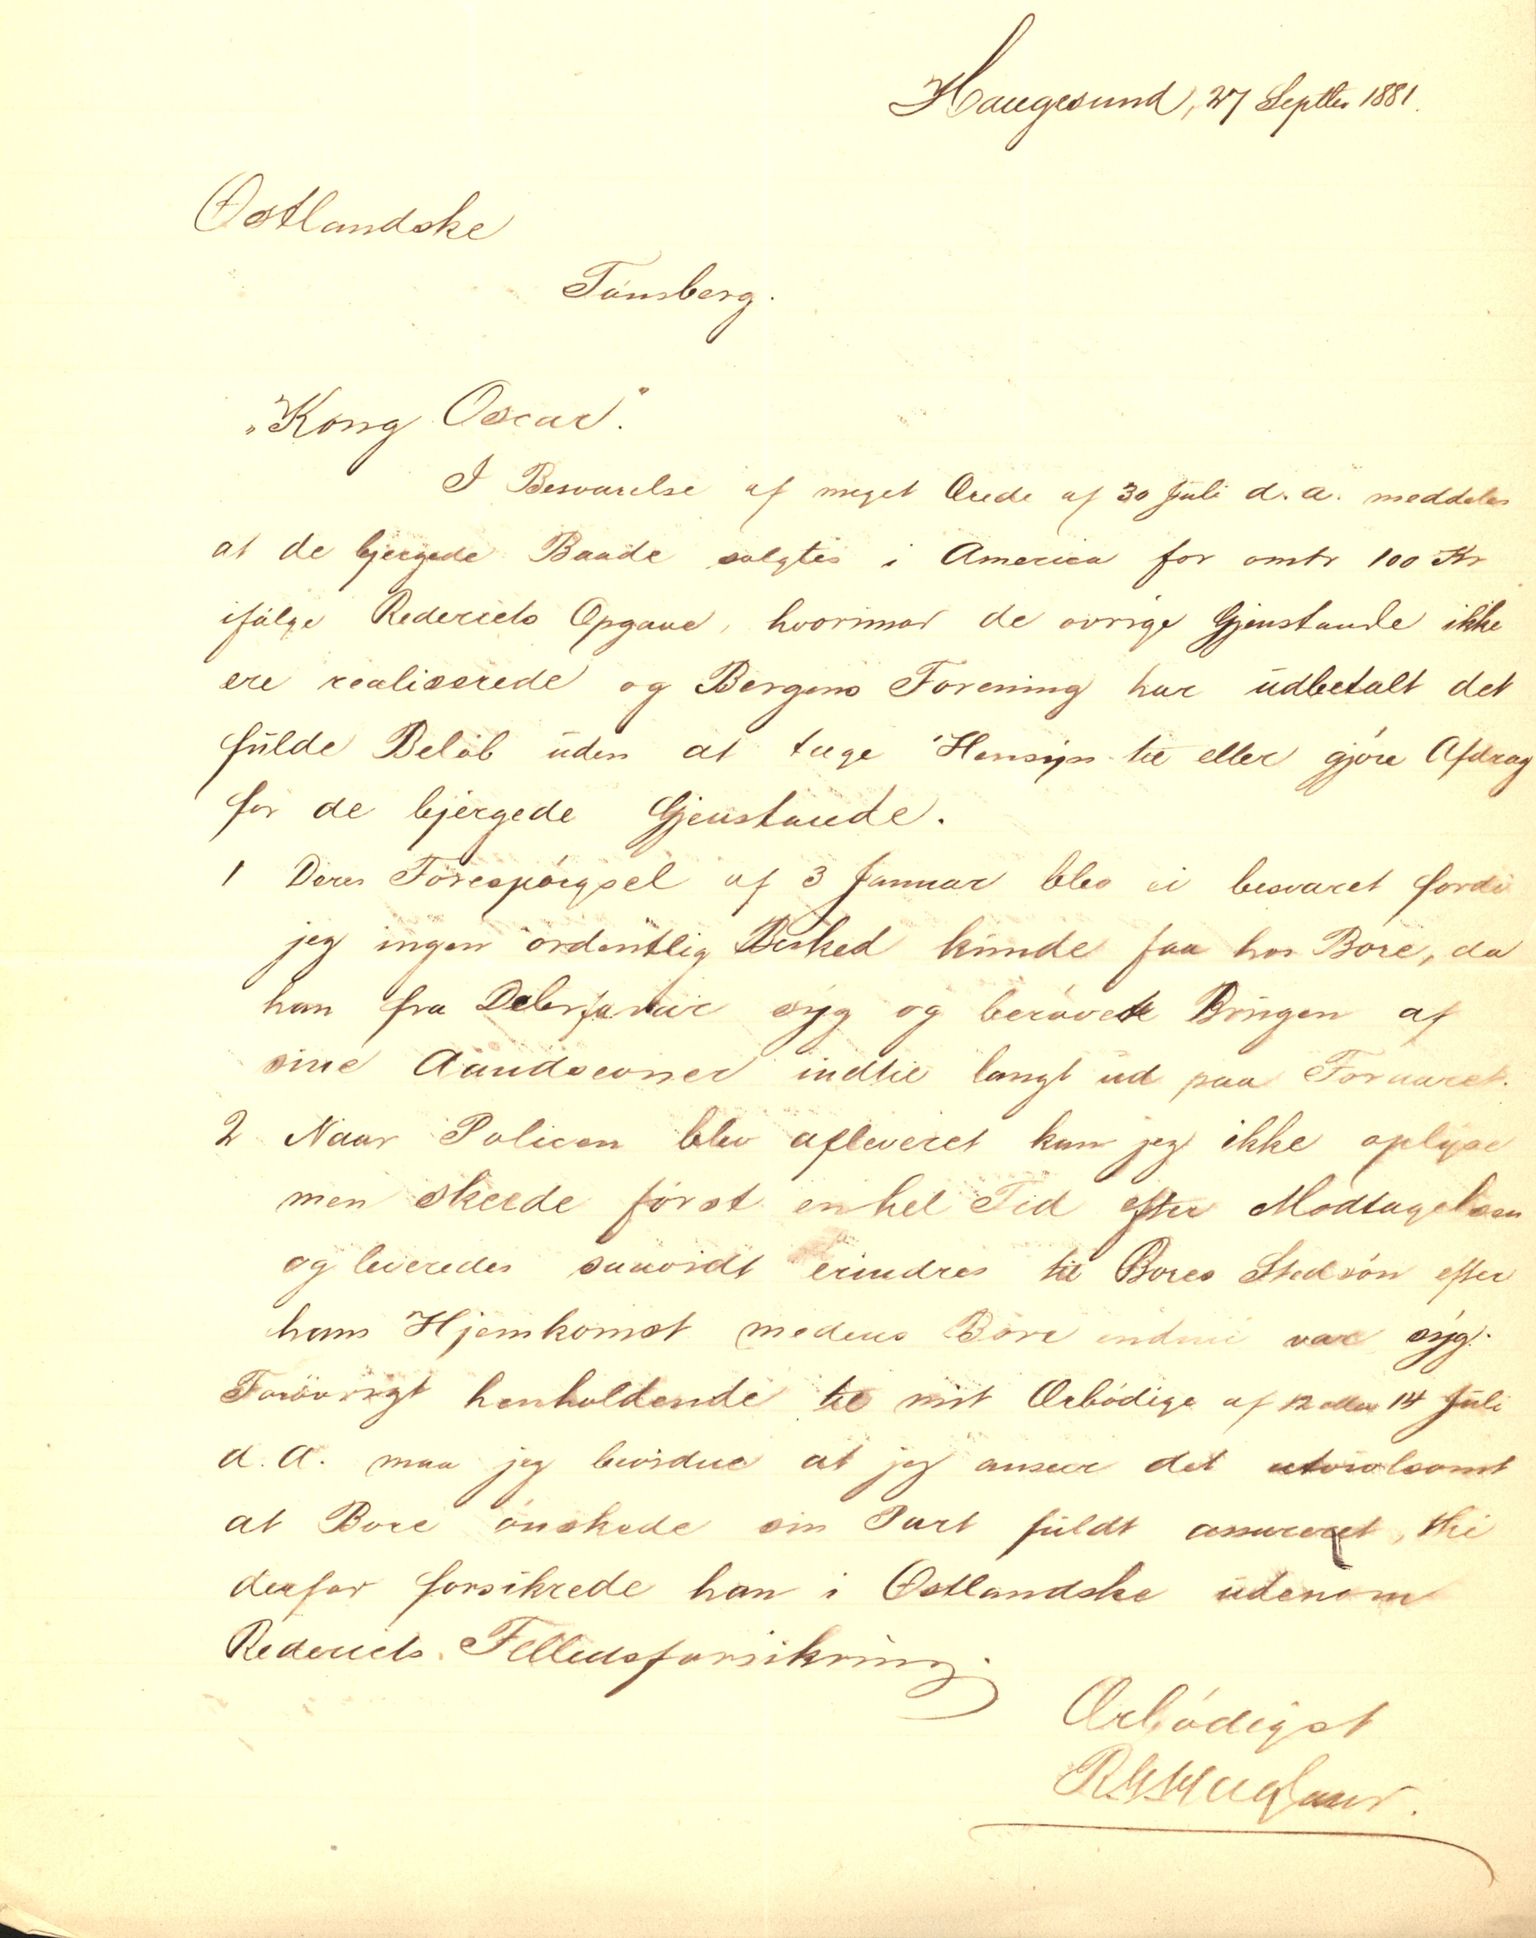 Haugesund, 27 Septbr 1881.
Østlandske
Tønsberg.
"Kong Oscar".
I Besvarelse af meget Ærede af 30 Juli d. A. meddeles
at de bjergede Baade solgtes i America for omtr 100 Kr
ifølge Rederiets Opgave, hvorimod de øvrige Gjenstande ikke
ere realiserede og Bergens Forening har udbetalt det
fulde Beløb uden at tage Hensyn til eller gjöre Afdrag
for de bjergede Gjenstande.
1 Deres Forespörgsel af 3 Januar blev ei besvaret fordi
jeg ingen ordentlig Besked kunde faa hos Bore, da
han fra var syg og berövet Brugen af
sine Aandsevner indtil langt ud paa Foraaret.
2 Naar Policen blev afleveret kan jeg ikke oplyse
men skeede först en hel Tid efter Modtagelsen
og leveredes saavidt erindres til Bores Stedsön efter
hans Hjemkomst medens Bore endnu var syg.
Forövrigt henholdende til mit Ærbödige af 12 eller 14 Juli
d. A. maa jeg bevidne at jeg anseer det utvivlsomt
at Bore önskede sin Part fuldt assureret, thi
derfor forsikrede han i Østlandske udenom
Rederiets Felledsforsikring.
Ærbödigst